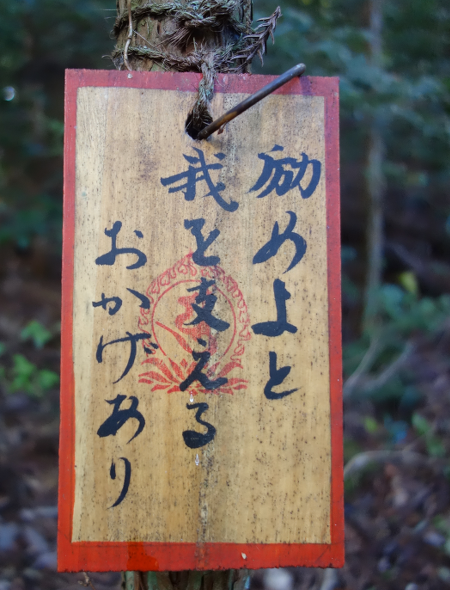 励めよと
我を支える
おかげあり